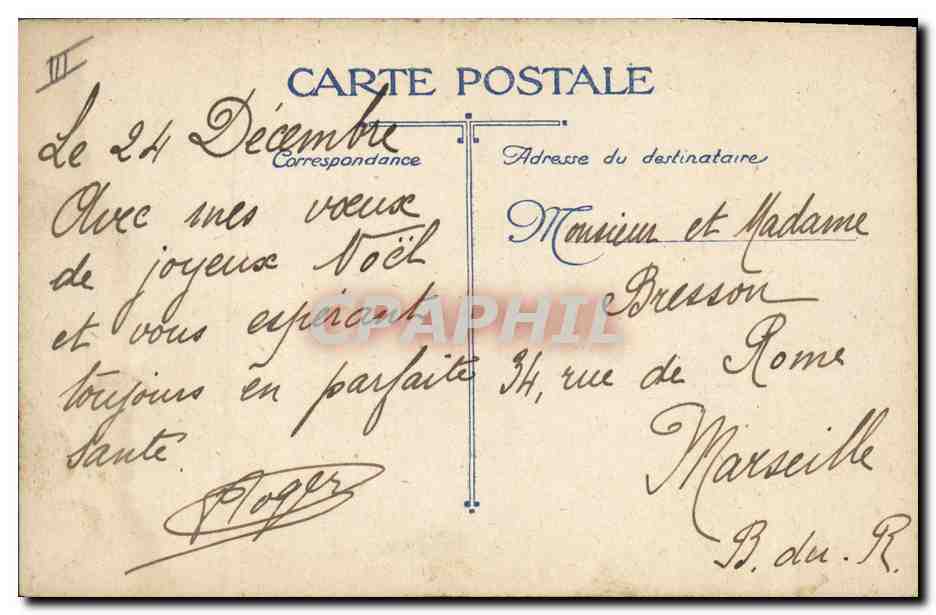 III
CARTE POSTALE
Correspondance
Le 24 Décembre
Avec mes vœux
de joyeux Noël
et vous espérant
toujours en parfaite
santé.
Roger
Adresse du destinataire
Monsieur et Madame
Bresson
34, rue de Rome
Marseille
B. du. R.
CPAPHIL